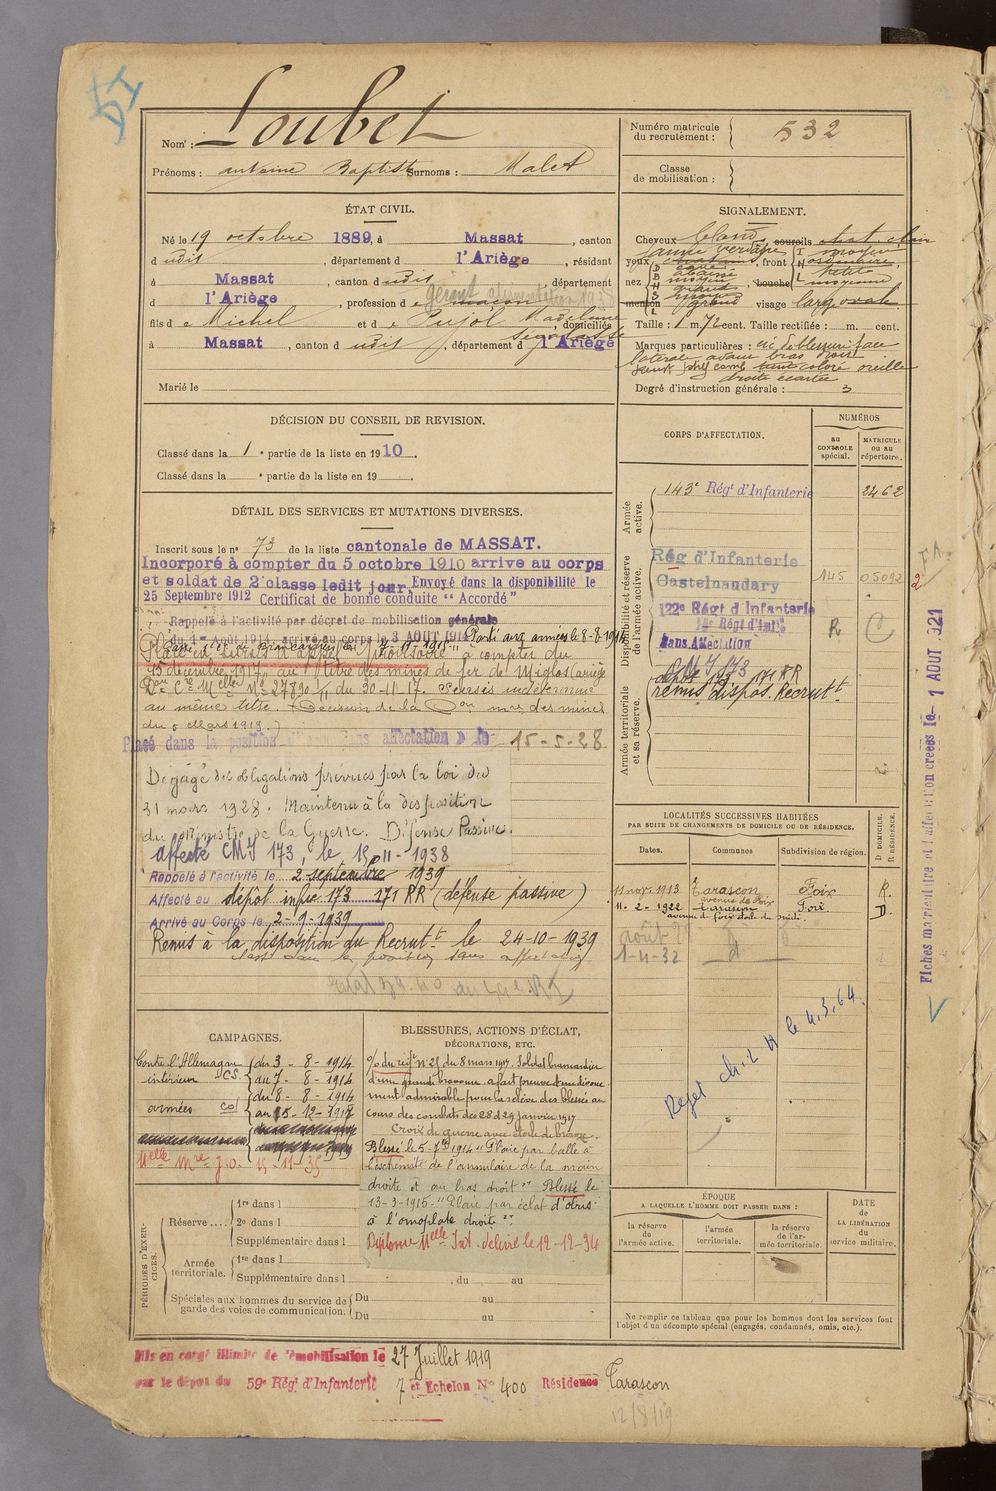 Loubet
Nom :
Prénoms : Antoine Baptiste Surnoms : Malet
Numéro matricule du recrutement : 532
Classe de mobilisation :
ÉTAT CIVIL.
Né le 19 octobre 1889, à Massat, canton
dudit, département d l'Ariège, résidant
à Massat, canton dudit, département
d l'Ariège, profession de maçon
gérant alimentation
fils de Michel et de Pujol Madeleine, domiciliés
à Massat, canton dudit, département d l'Ariège
Marié le
SIGNALEMENT.
Cheveux blond, sourcils chat. clair
yeux, front
nez, bouche
menton, visage large ovale
Taille : 1 m. 72 cent. Taille rectifiée : m. cent.
Marques particulières : cic. de blessure face
latérale avant bras droit
oreille
droite écartée
Degré d'instruction générale : 3
DÉCISION DU CONSEIL DE REVISION.
Classé dans la 1e partie de la liste en 1910.
Classé dans la e partie de la liste en 19
DÉTAIL DES SERVICES ET MUTATIONS DIVERSES.
Inscrit sous le n° 73 de la liste cantonale de MASSAT.
Incorporé à compter du 5 octobre 1910 arrive au corps
et soldat de 2e classe ledit jour. Envoyé dans la disponibilité le
25 Septembre 1912 Certificat de bonne conduite "Accordé"
Rappelé à l'activité par décret de mobilisation générale
du 1er Août 1914 arrivé au corps le 3 AOUT 1914 Parti aux armées le 8-8-1914
Placé en sursis d'appel à compter du
15 décembre 1917, au titre des mines de fer de Miglos (Ariège)
Don Cle Melle No 27890 du 30-11-17. Sursis indéterminé
au même titre. (Décision de la Don mre des mines
du 5 Mars 1919.)
Placé dans la position sans affectation D le 15-5-28
Dégagé des obligations prévues par la loi du
31 mars 1928. Maintenu à la disposition
du Ministre de la Guerre. Défense Passive.
affecté CMJ 173, le 15-11-1938
Rappelé à l'activité le 2 septembre 1939
Affecté au dépôt infie 173 171 RR (défense passive)
Arrivé au Corps le 2-9-1939
Remis à la disposition du Recrutt le 24-10-1939
Placé dans la position sans affectation
CORPS D'AFFECTATION.
NUMÉROS
au CONTROLE spécial.
MATRICULE ou au répertoire.
Armée active.
143e Régt d'Infanterie 2462
Disponibilité et réserve de l'armée active.
Rég d'Infanterie
Castelnaudary 145 05092
122e Régt d'Infanterie R
Sans Affectation
CMJ 173
dépôt 171 RR
remis dispos. Recrutt
Armée territoriale et sa réserve.
Fiches matriculaire et d'affectation créées le 1 AOUT 1921
LOCALITÉS SUCCESSIVES HABITÉES
PAR SUITE DE CHANGEMENTS DE DOMICILE OU DE RÉSIDENCE.
Dates. Communes Subdivision de région. D DOMICILE. R RÉSIDENCE.
11 nov. 1913 Tarascon Foix R
avenue de Foix
11-2-1922 Tarascon Foix D
avenue de foix
1-4-32 d
Rejet le 4.3.64
CAMPAGNES.
Contre l'Allemagne du 3-8-1914
intérieur CS. au 7-8-1914
du 8-8-1914
armées CD au 15-12-1917
BLESSURES, ACTIONS D'ÉCLAT,
DÉCORATIONS, ETC.
O/ du régt No 25 du 8 mars 1917. Soldat brancardier
d'une grande bravoure a fait preuve d'un dévoue
ment admirable pour la relève des blessés au
cours des combats des 28 et 29 janvier 1917
Croix de guerre avec étoile de bronze.
Blessé le 5-7bre 1914 "Plaie par balle à
l'extrémité de l'annulaire de la main
droite et au bras droit". Blessé le
13-3-1915 "Plaie par éclat d'obus
à l'omoplate droite".
Diplôme Melle Int. délivré le 12-12-34
PÉRIODES D'EXERCICES.
Réserve....
1re dans l
2e dans l
Supplémentaire dans l
Armée territoriale.
1re dans l
Supplémentaire dans l , du au
Spéciales aux hommes du service de garde des voies de communication.
Du au
Du au
ÉPOQUE
A LAQUELLE L'HOMME DOIT PASSER DANS :
la réserve de l'armée active.
l'armée territoriale.
la réserve de l'armée territoriale.
DATE de LA LIBÉRATION du service militaire.
Ne remplir ce tableau que pour les hommes dont les services font
l'objet d'un décompte spécial (engagés, condamnés, omis, etc.).
Mis en congé illimité de démobilisation le 27 Juillet 1919
par le dépôt du 59e Régt d'Infanterie 7e Echelon No 400 Résidence Tarascon
12/8/19